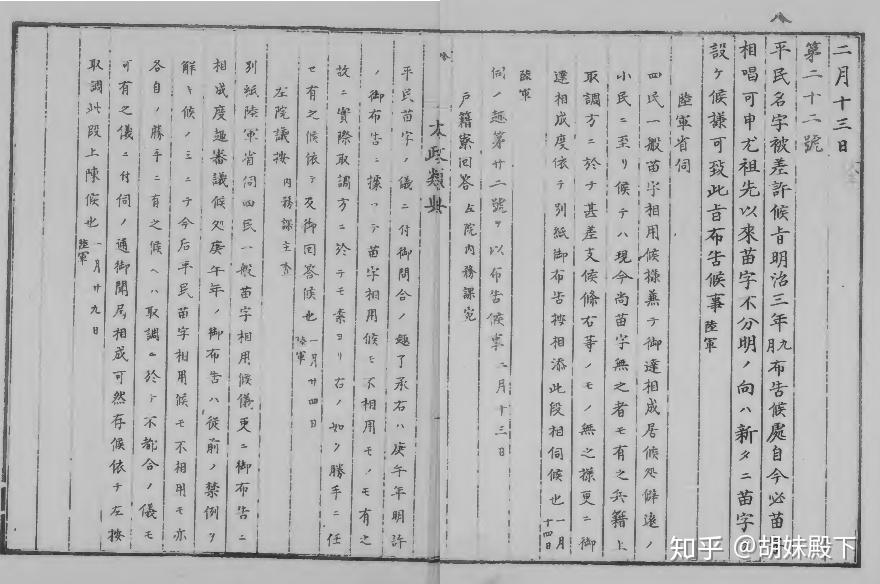 八
二月十三日
第二十二號
平民名字被差許候旨明治三年九月布告候處自今必苗字
相唱可申尤祖先以來苗字不分明ノ向ハ新タニ苗字
設ケ候様可致此旨布告候事 陸軍
陸軍省伺
四民一般苗字相用候様兼テ御達相成居候処僻遠ノ
小民ニ至リ候テハ現今尚苗字無之者モ有之兵籍上
取調方ニ於テ甚差支候條右等ノモノ無之様更ニ御
達相成度依テ別紙御布告按相添此段相伺候也 一月十四日
陸軍
伺ノ趣第廿二號ヲ以布告候事 二月十三日
戸籍寮回答 左院内務課宛
太政類典
平民苗字ノ儀ニ付御問合ノ趣了承右ハ庚午年明許
ノ御布告ニ據ハテ苗字相用候モ不相用モノモ有之
故ニ實際取調方ニ於テモ素ヨリ右ノ如ク勝手ニ任
セ有之候依テ及御回答候也 一月廿四日 陸軍
左院議按 内務課主査
別紙陸軍省伺四民一般苗字相用候儀更ニ御布告ニ
相成度趣審議候処庚午年ノ御布告ハ従前ノ禁例ヲ
解キ候ノミニテ今后平民苗字相用候モ不相用モ亦
各自ノ勝手ニ有之候ヘハ取調ニ於テ不都合ノ儀モ
可有之儀ニ付伺ノ通御聞届相成可然存候依テ左按
取調此段上陳候也 一月廿九日 陸軍
知乎 @胡妹殿下